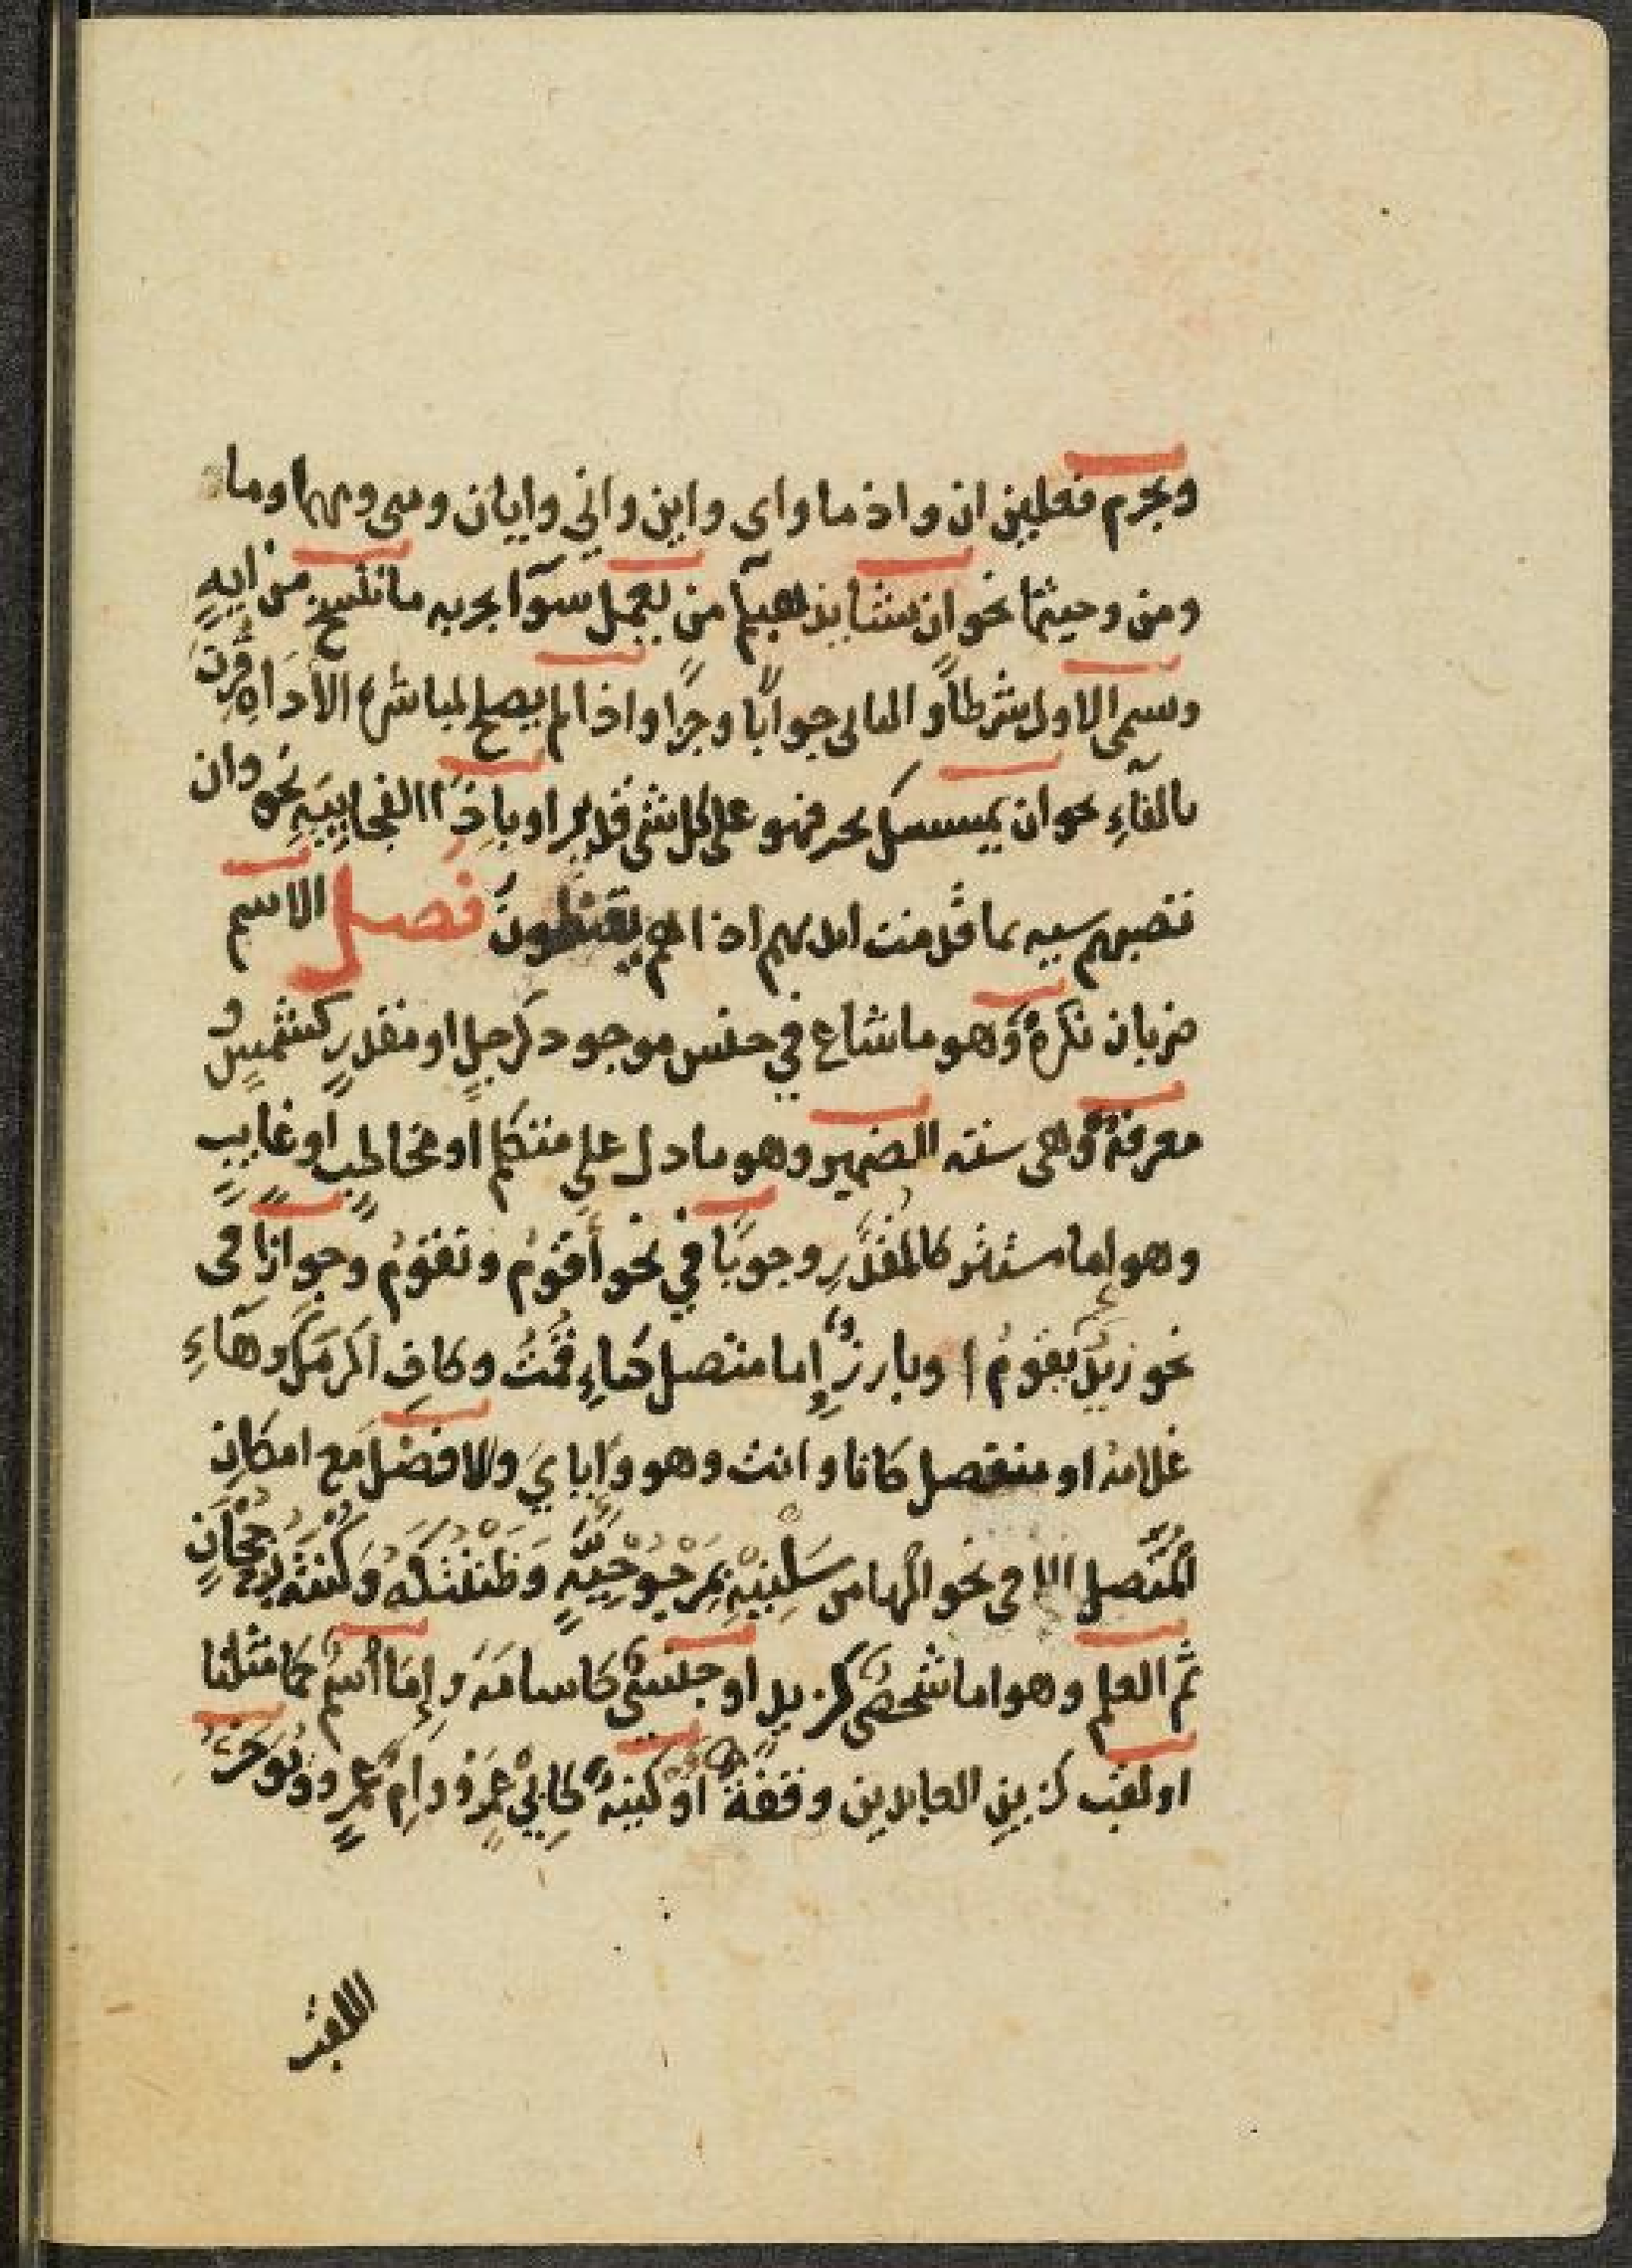 ويجزم فعلين ان واذ ما واى واين وانى وايان ومتى ومهما وما
ومن وحيثما نحو ان يشأ يذهبكم من يعمل سوآ يجز به ما ننسخ من ايةٍ
ويسمى الاول شرطاً والثانى جواباً وجزاً واذا لم يصلح لمباشرة الأداةِ قُرِنَ
بالفآءِ نحو ان يمسسك بخير فهو على كل شئ قدير او باِذَا الفجاييةِ نحو وان
تصبهم سيية بما قدمت ايديهم اذا هم يقنطون فصل الاسم
ضربان نكرةٌ وهو ما شاع في جنس موجود كرجلٍ او مقدرٍ كشمسٍ و
معرفةٌ وهى ستة الضمير وهو ما دل على متكلمٍ او مخاطبٍ او غايبٍ
وهو إما مستتر كالمقدَّرِ وجوبًا في نحو أقومُ وتقومُ وجوازًا فى
نحو زيدٌ يقومُ او بارزٌ وإما متصل كتاءِ قمتُ وكافِ اكرمَكَ وهآءِ
غلامه او منفصل كانا وانت وهو واياىَ ولا فصلَ مع امكانِ
المُتَّصلِ الا فى نحو الهاء من سَلْنِيْهِ بِمَرْجُوْحِيَّةٍ وَظَنَنْتُكَهُ وَكُنْتَهُ بِرُجْحَانٍ
ثم العلم وهو اما شخصى كزيدٍ او جنسىٌّ كاسامةَ وإمَّا اسمٌ كما مثلنا
او لقب كزين العابدين وقفةَ أو كنيةٌ كابى عمرٍو وام عمرٍو ويُؤَخَّرُ
اللقب